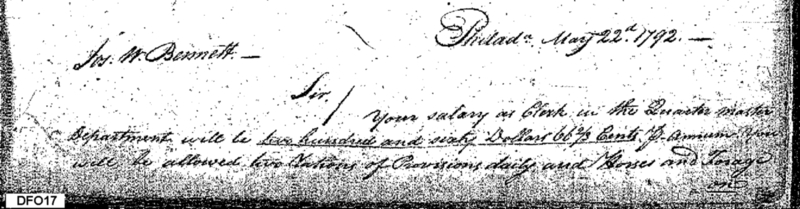 Philada. May 22d. 1792. —
Jos. W. Bennett. —
Sir,
Your salary as Clerk in the Quarter master
Department will be two hundred and sixty Dollars 66⅔ Cents ⅌ Annum. You
will be allowed two Rations of Provisions daily and Horses and Forage
DFO17